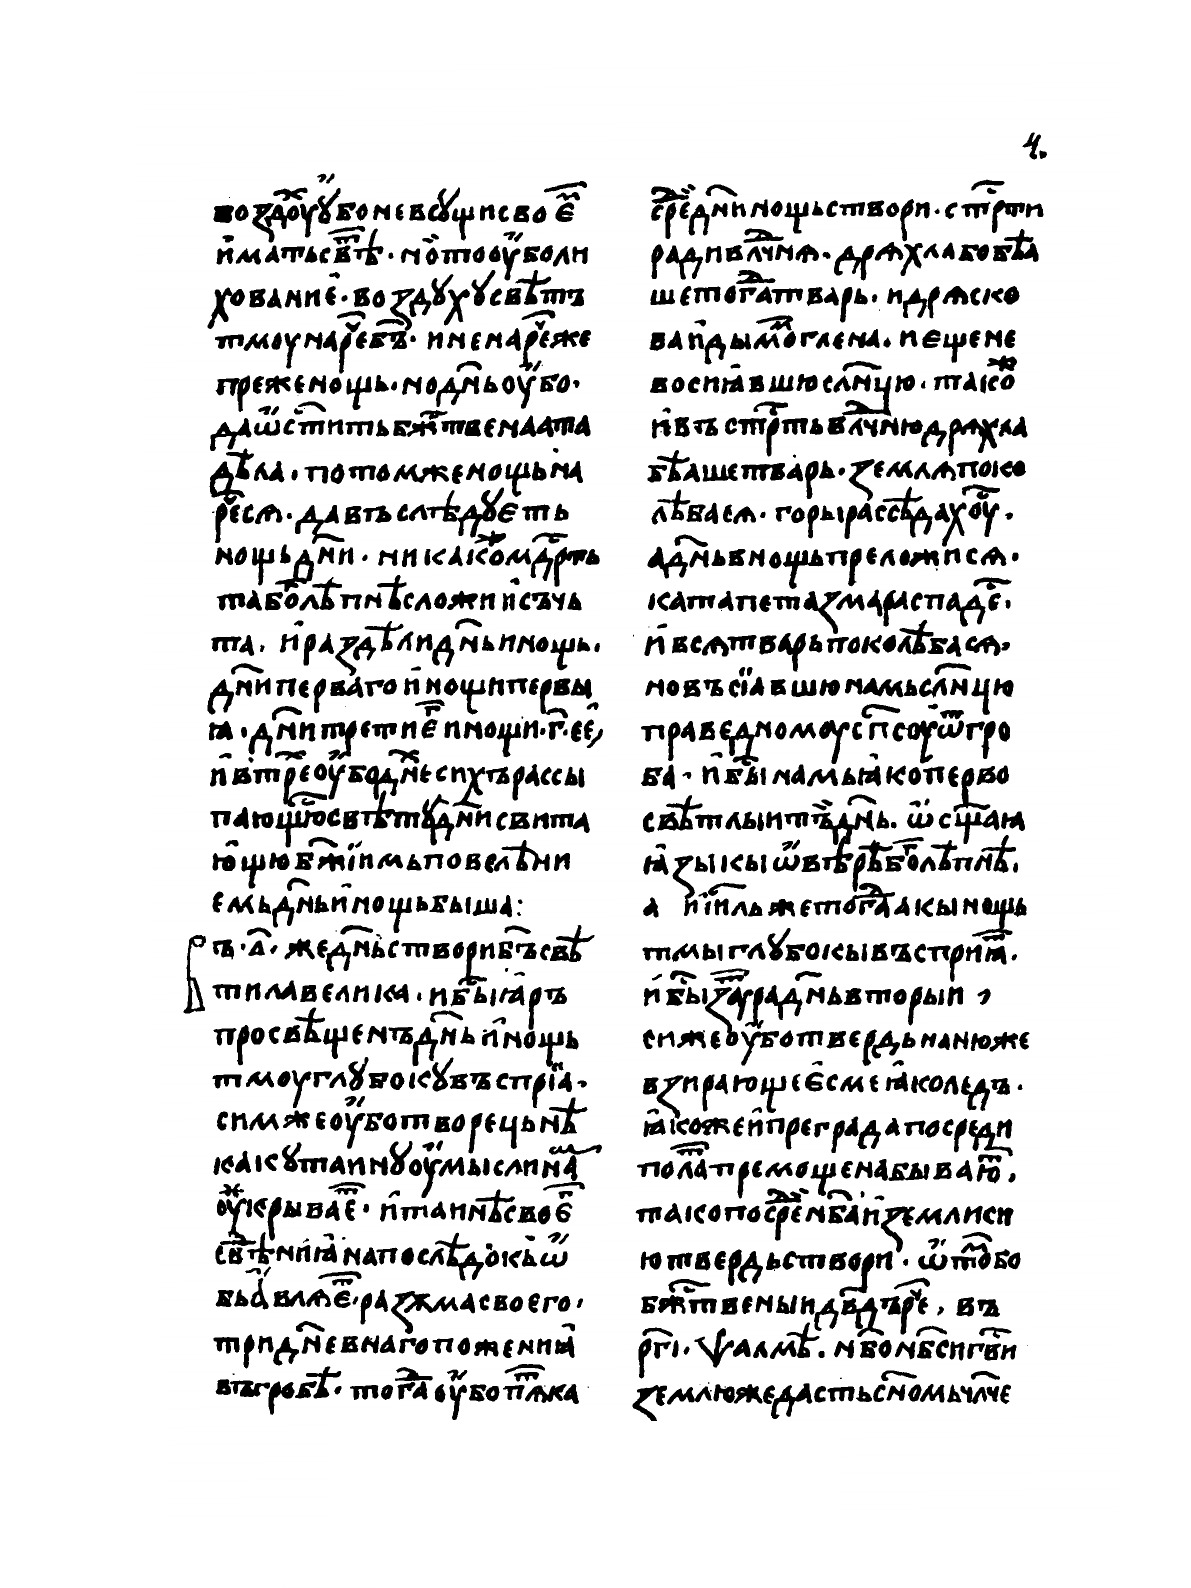 4.
воздоуⷯ ѹбо невсѹщи сво еⷨ҇
иматьсвⷮ҇тѣ· но тооубо ли
хование· воздѹхѹсвѣтъ
тмоу наречⷡ҇ бг҃ъ· и не нареⷱ҇же
преже нощь· но дн҃ь оубо·
да ѿст҃итьбж҃твена ата
дѣла· потом же нощь на
реⷱ҇ся· да въслѣдѹеть
нощь дн҃и· никакоⷤ мдрⷭ҇ть
та бг҃олѣпнѣ сложи исъчь
та· и раздѣли дн҃ь и нощь·
дн҃и перваго и нощи первы
ꙗ· дн҃и третиеⷢ҇ и нощи·г҃·еѣ,
ивтреⷯ оубо днеⷯ сихърассы
пающюⷭ҇ свѣтѹ дн҃и свита
ющю бж҃іимь повелѣни
емь дн҃ь инощь быша:
ъ·д҃· же дн҃ь створи бг҃ъ свѣ
тила велика· и бы҃ заръ
просвѣщенъ дн҃ь и нощь
тмоу глѹбокѹ въспріа·
сим же оубо творець нѣ
какѹ таинѹ оумысли наⷲ
оуⷤкрываеⷮ· и таинѣ своеⷢ
свⷣѣниꙗ напослѣдокъ ѿ
бьавляеⷮ· разѹма своего,
триднⷭ҇евнаго ложениꙗ
въгробѣ· тогⷣа оубо пⷮ҇яка
среⷣ дн҃и нощь створи· стрⷭ҇ти
ради влⷣчня· дряхла бо бѣа
ше тогⷣа тварь· идряско
ва и дымоⷨглена· и еще не
восиꙗвшю слн҃цю· такоⷤ
ивъ стрⷭ҇ть влⷣчню дряхла
бѣаше тварь· земля поко
лѣбася· горы рассѣдахоуⷭ҇·
а дн҃ь в нощь преложися·
катапетазма распадеⷭ҇·
ився тварь поколѣбася·
но въсіавшю намь слн҃цю
праведномоу сп҃соу ѿⷮ гро
ба· и бы҃ намь ꙗко перво
свѣтлыи тъ дн҃ь· ѿ сщ҃аꙗ
ꙗзыкы ѿ вѣрѣ бг҃олѣпнѣ,
а и іи҃ль же тогⷣа акы нощь
тмы глѹбокы въсприꙗⷮ·
и бы҃ заⷮ҇ра дн҃ь вторыи ,
сиже оубо твердь на нюже
взирающе есме ꙗко ледъ·
ꙗкоже и преграда посреди
пола премощена бываюⷮ,
тако посреⷣ нб҃а и земли си
ю твердь створи· ѿ тоⷨ бо
бжⷭ҇твеныи дв҃дъ реⷱ҇, въ
рг҃і· ѱалмѣ· нб҃о нб҃си гв҃и
землю же дасть сн҃омь члч҃е